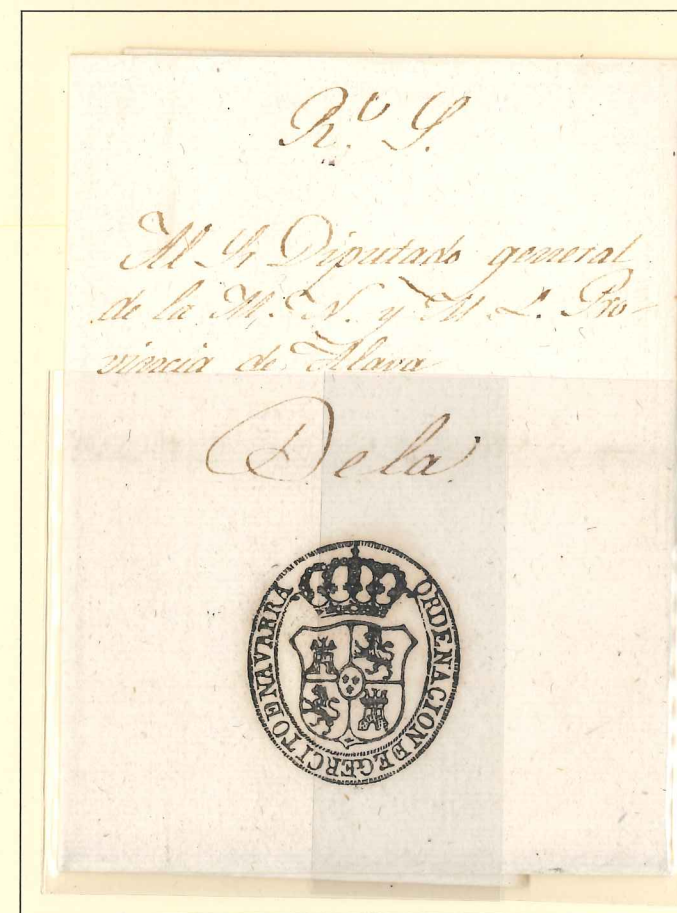 R.º S.
Al Sr Diputado general
de la M. N. y M. L. Pro-
vincia de Alava
De la
ORDENACION DE GERCITO DE NAVARRA